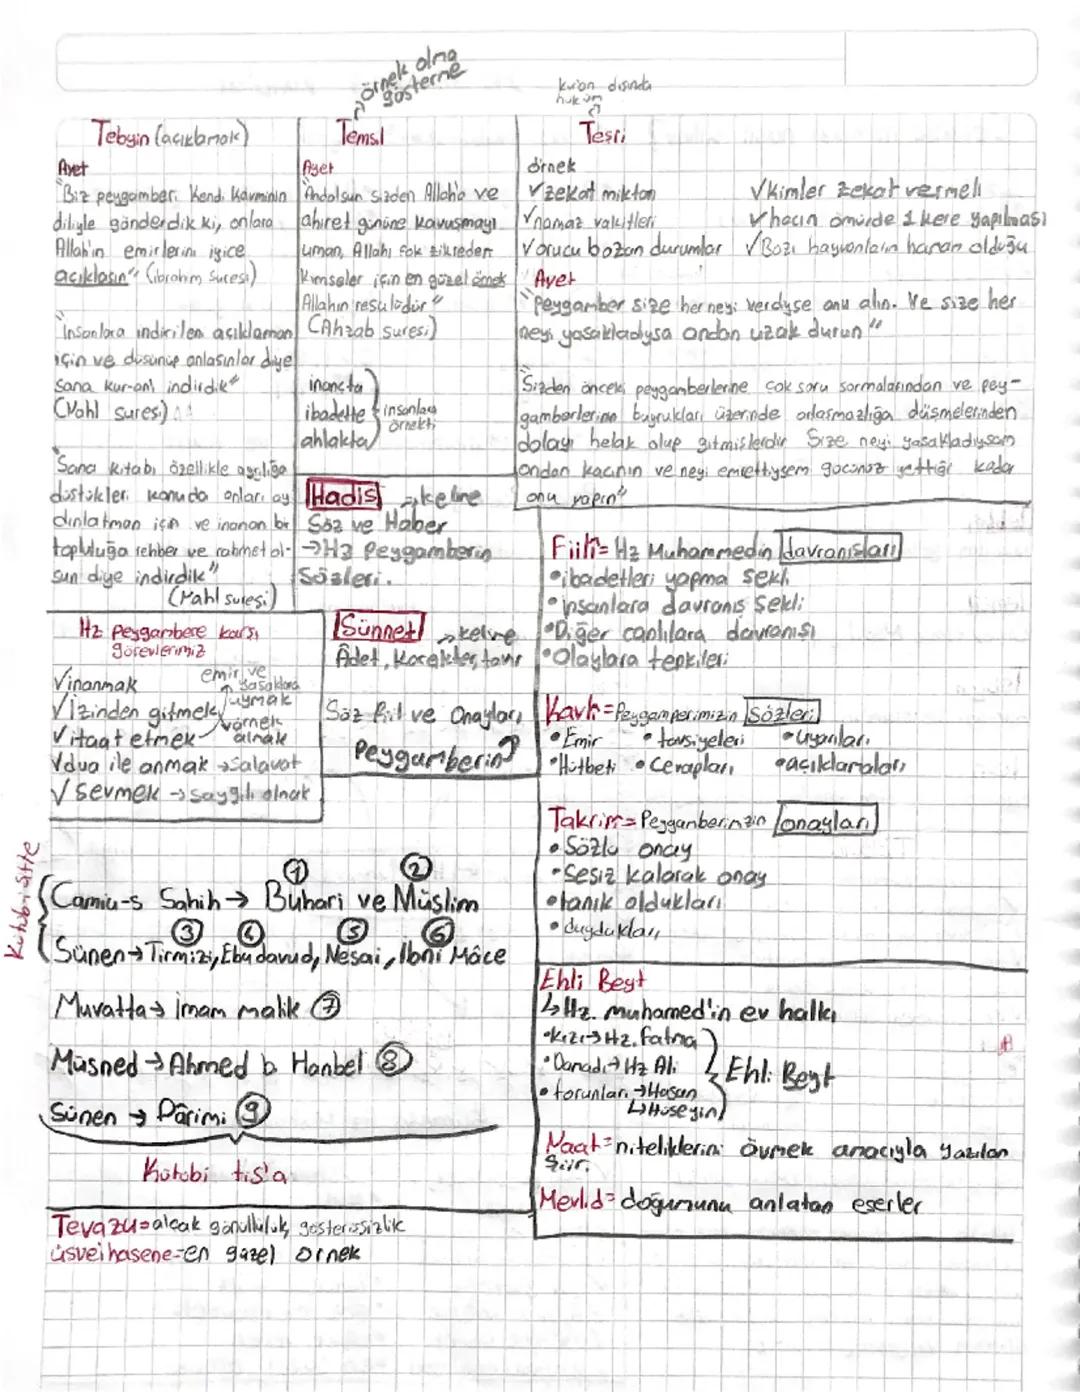 Tebyin (açıklamak)
Ayet
"Biz peygamberi Kendi Kavminin
diliyle gönderdik ki, onlara
Allah'ın emirlerini iyice
açıklasın" (ibrahim Suresi)
"İnsanlara indirilen açıklaman
için ve düşünüp anlasınlar diye
sana kur-anı indirdik"
(Nahl suresi)
"Sana kitabı özellikle ayrılığa
düştükleri konuda onları ay
dınlatman için ve inanan bir
topluluğa rehber ve rahmet ol-
sun diye indirdik"
(Nahl suresi)
örnek olma
gösterme
Temsil
Ayet
"Andolsun sizden Allah'a ve
ahiret gününe kavuşmayı
uman, Allahı çok zikreden
kimseler için en güzel örnek
Allahın resulüdür"
(Ahzab suresi)
inançta
ibadette
ahlakta
insanlara
örnekti
kur'an dışında
hüküm
Teşri
örnek
√zekat miktarı
√namaz vakitleri
√orucu bozan durumlar
√kimler zekat vermeli
√hacın ömürde 1 kere yapılması
√Bazı hayvanların haram olduğu
Ayet
"Peygamber size her neyi verdiyse onu alın. Ve size her
neyi yasakladıysa ondan uzak durun"
"Sizden önceki peygamberlerine çok soru sormalarından ve pey-
gamberlerinin buyrukları üzerinde anlaşmazlığa düşmelerinden
dolayı helak olup gitmişlerdir Size neyi yasakladıysam
ondan kaçının ve neyi emrettiysem gücünüz yettiği kadar
onu yapın"
Hadis → kelime
Söz ve Haber
→Hz Peygamberin
Sözleri.
Hz Peygambere karşı
görevlerimiz
√inanmak
√İzinden gitmek
√itaat etmek
emir ve
yasaklara
uymak
örnek
almak
√dua ile anmak →Salavat
√sevmek →saygılı olmak
Sünnet → kelime
Âdet, Karakter, tavır
Söz fiil ve Onayları
Peygamberin
Fiili= Hz Muhammedin davranışları
•ibadetleri yapma şekli
•insanlara davranış Şekli
•Diğer canlılara davranışı
•Olaylara tepkileri
Kavli=Peygamperimizin Sözleri
•Emir •tavsiyeleri •uyarıları
•Hutbeti •Cevapları •açıklamaları
Takriri=Peygamberimizin onayları
•Sözlü onay
•Sesiz kalarak onay
•tanık oldukları
•duydukları
Kutubi sitte
Camiu-s Sahih→ Buhari ve Müslim
1 2
Sünen→Tirmizi, Ebu davud, Nesai, İbni Mâce
3 4 5 6
Muvatta→ İmam malik 7
Müsned →Ahmed b. Hanbel 8
Sünen → Dârimi 9
Kütubi tis'a
Ehli Beyt
↳Hz. muhamed'in ev halkı
•kızı→Hz. Fatma
•Damadı→Hz Ali
•torunları →Hasan
↳Hüseyin
Ehli Beyt
Naat=niteliklerini övmek amacıyla yazılan
Şiir.
Mevlid= doğumunu anlatan eserler
Tevazu=alçak gönüllülük, gösterişsizlik
üsvei hasene=en güzel örnek